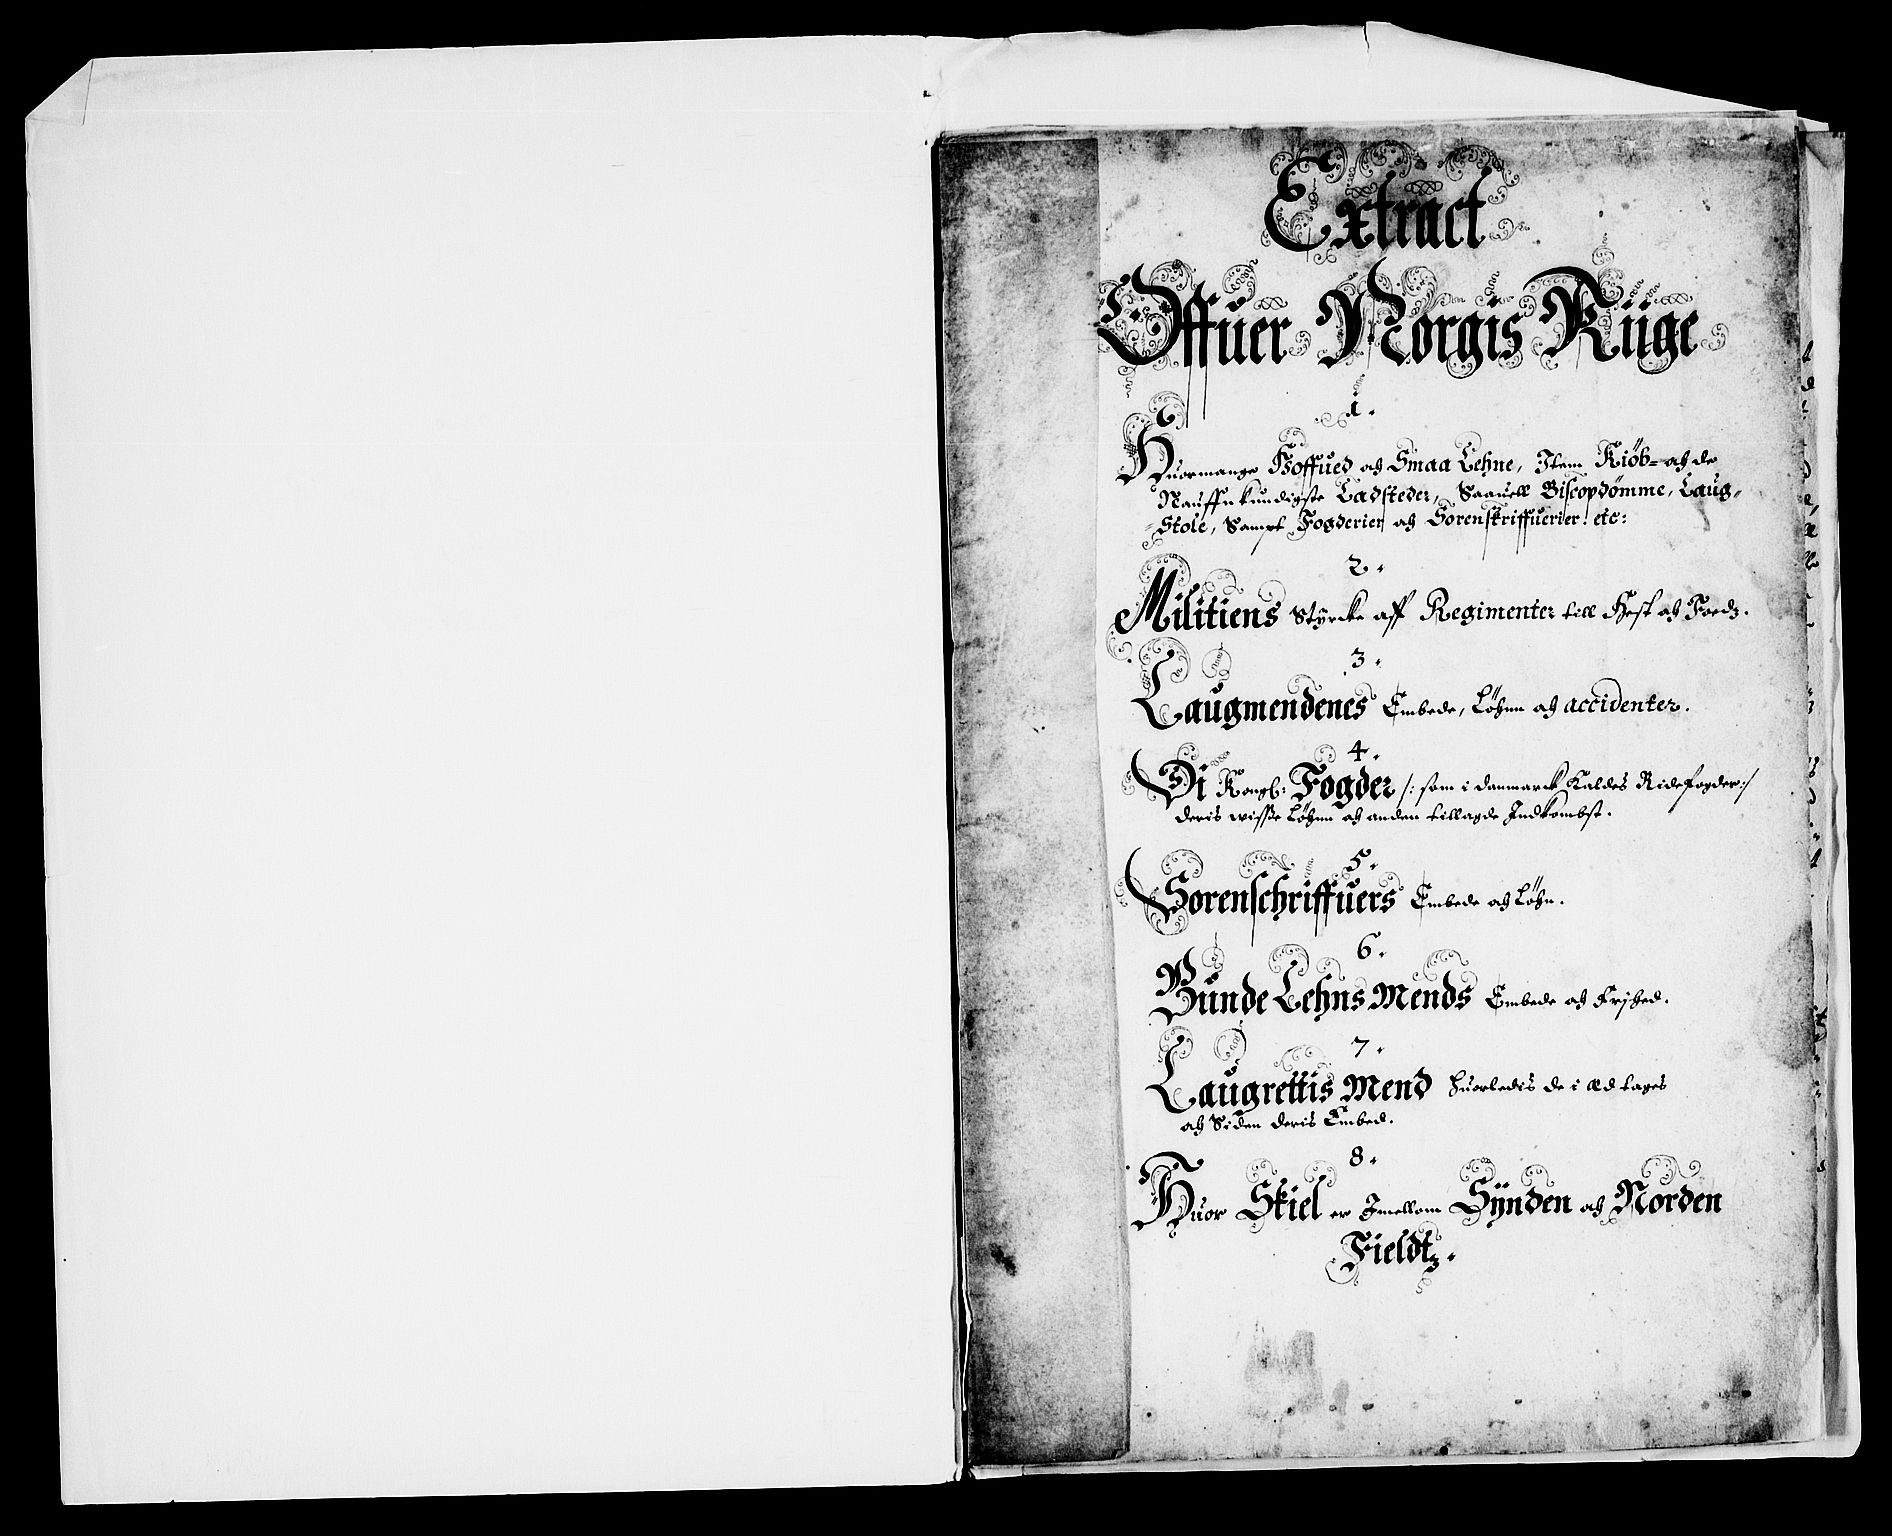 Extract
Offuer Norgis Riige
1.
Huormange Hoffued och Smaa Lehne, Item Kiöb= och de
Nauffnkundigste Ladsteder, Saauell Biscopdömme, Laug=
=Stole, Sampt Fogderier och Sorenskriffuerier. etc:
2.
Militiens Styrcke aff Regimenter till Hest och Foedz.
3.
Laugmendenes Embede, Löhnn och accidenter.
4.
Di Kongl: Fogder /: som i Danmarck Kaldes Ridefogder:/
deris wisse Löhnn och anden tillagde Indkombst.
5.
Sorenschriffuers Embede och Löhn.
6.
Bunde Lehns Mends Embede och Frijhed.
7.
Laugrettis Mend huorledis de i æd tages
och Siden deris Embed.
8.
Huor Skiel er Imellom Synden och Norden
Fieldtz.